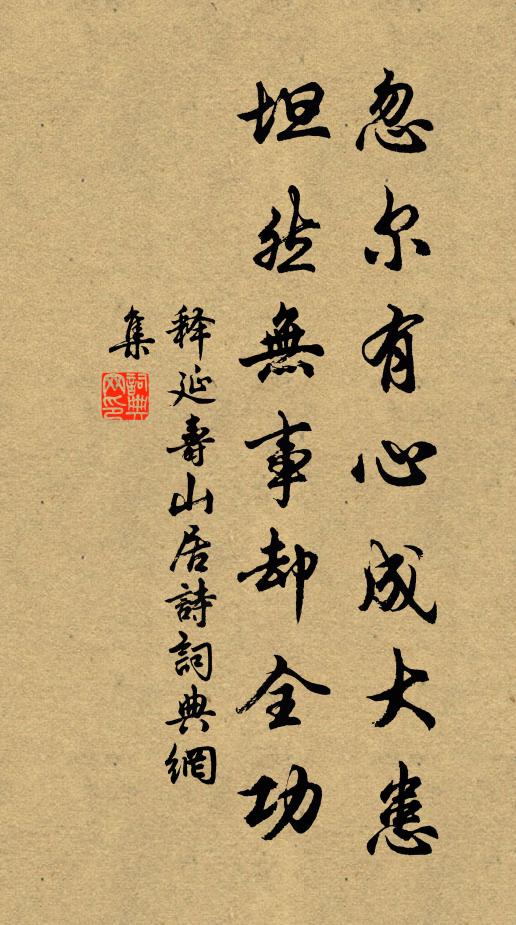 忽尔有心成大患
坦然無事却全功
释延壽山居詩詞典網
集
詞典
网印